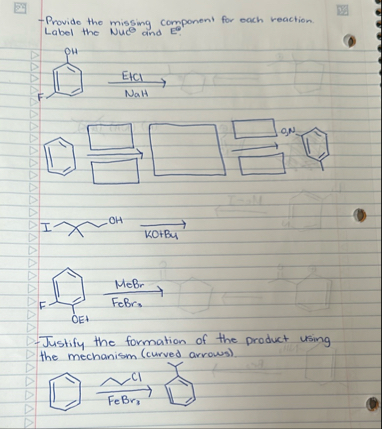 -Provide the missing component for each reaction.
Label the Nuc⊖ and E⊕.
OH
F
EtCl
NaH
O₂N
I
OH
KOtBu
F
OEt
MeBr
FeBr₃
-Justify the formation of the product using
the mechanism (curved arrows).
Cl
FeBr₃